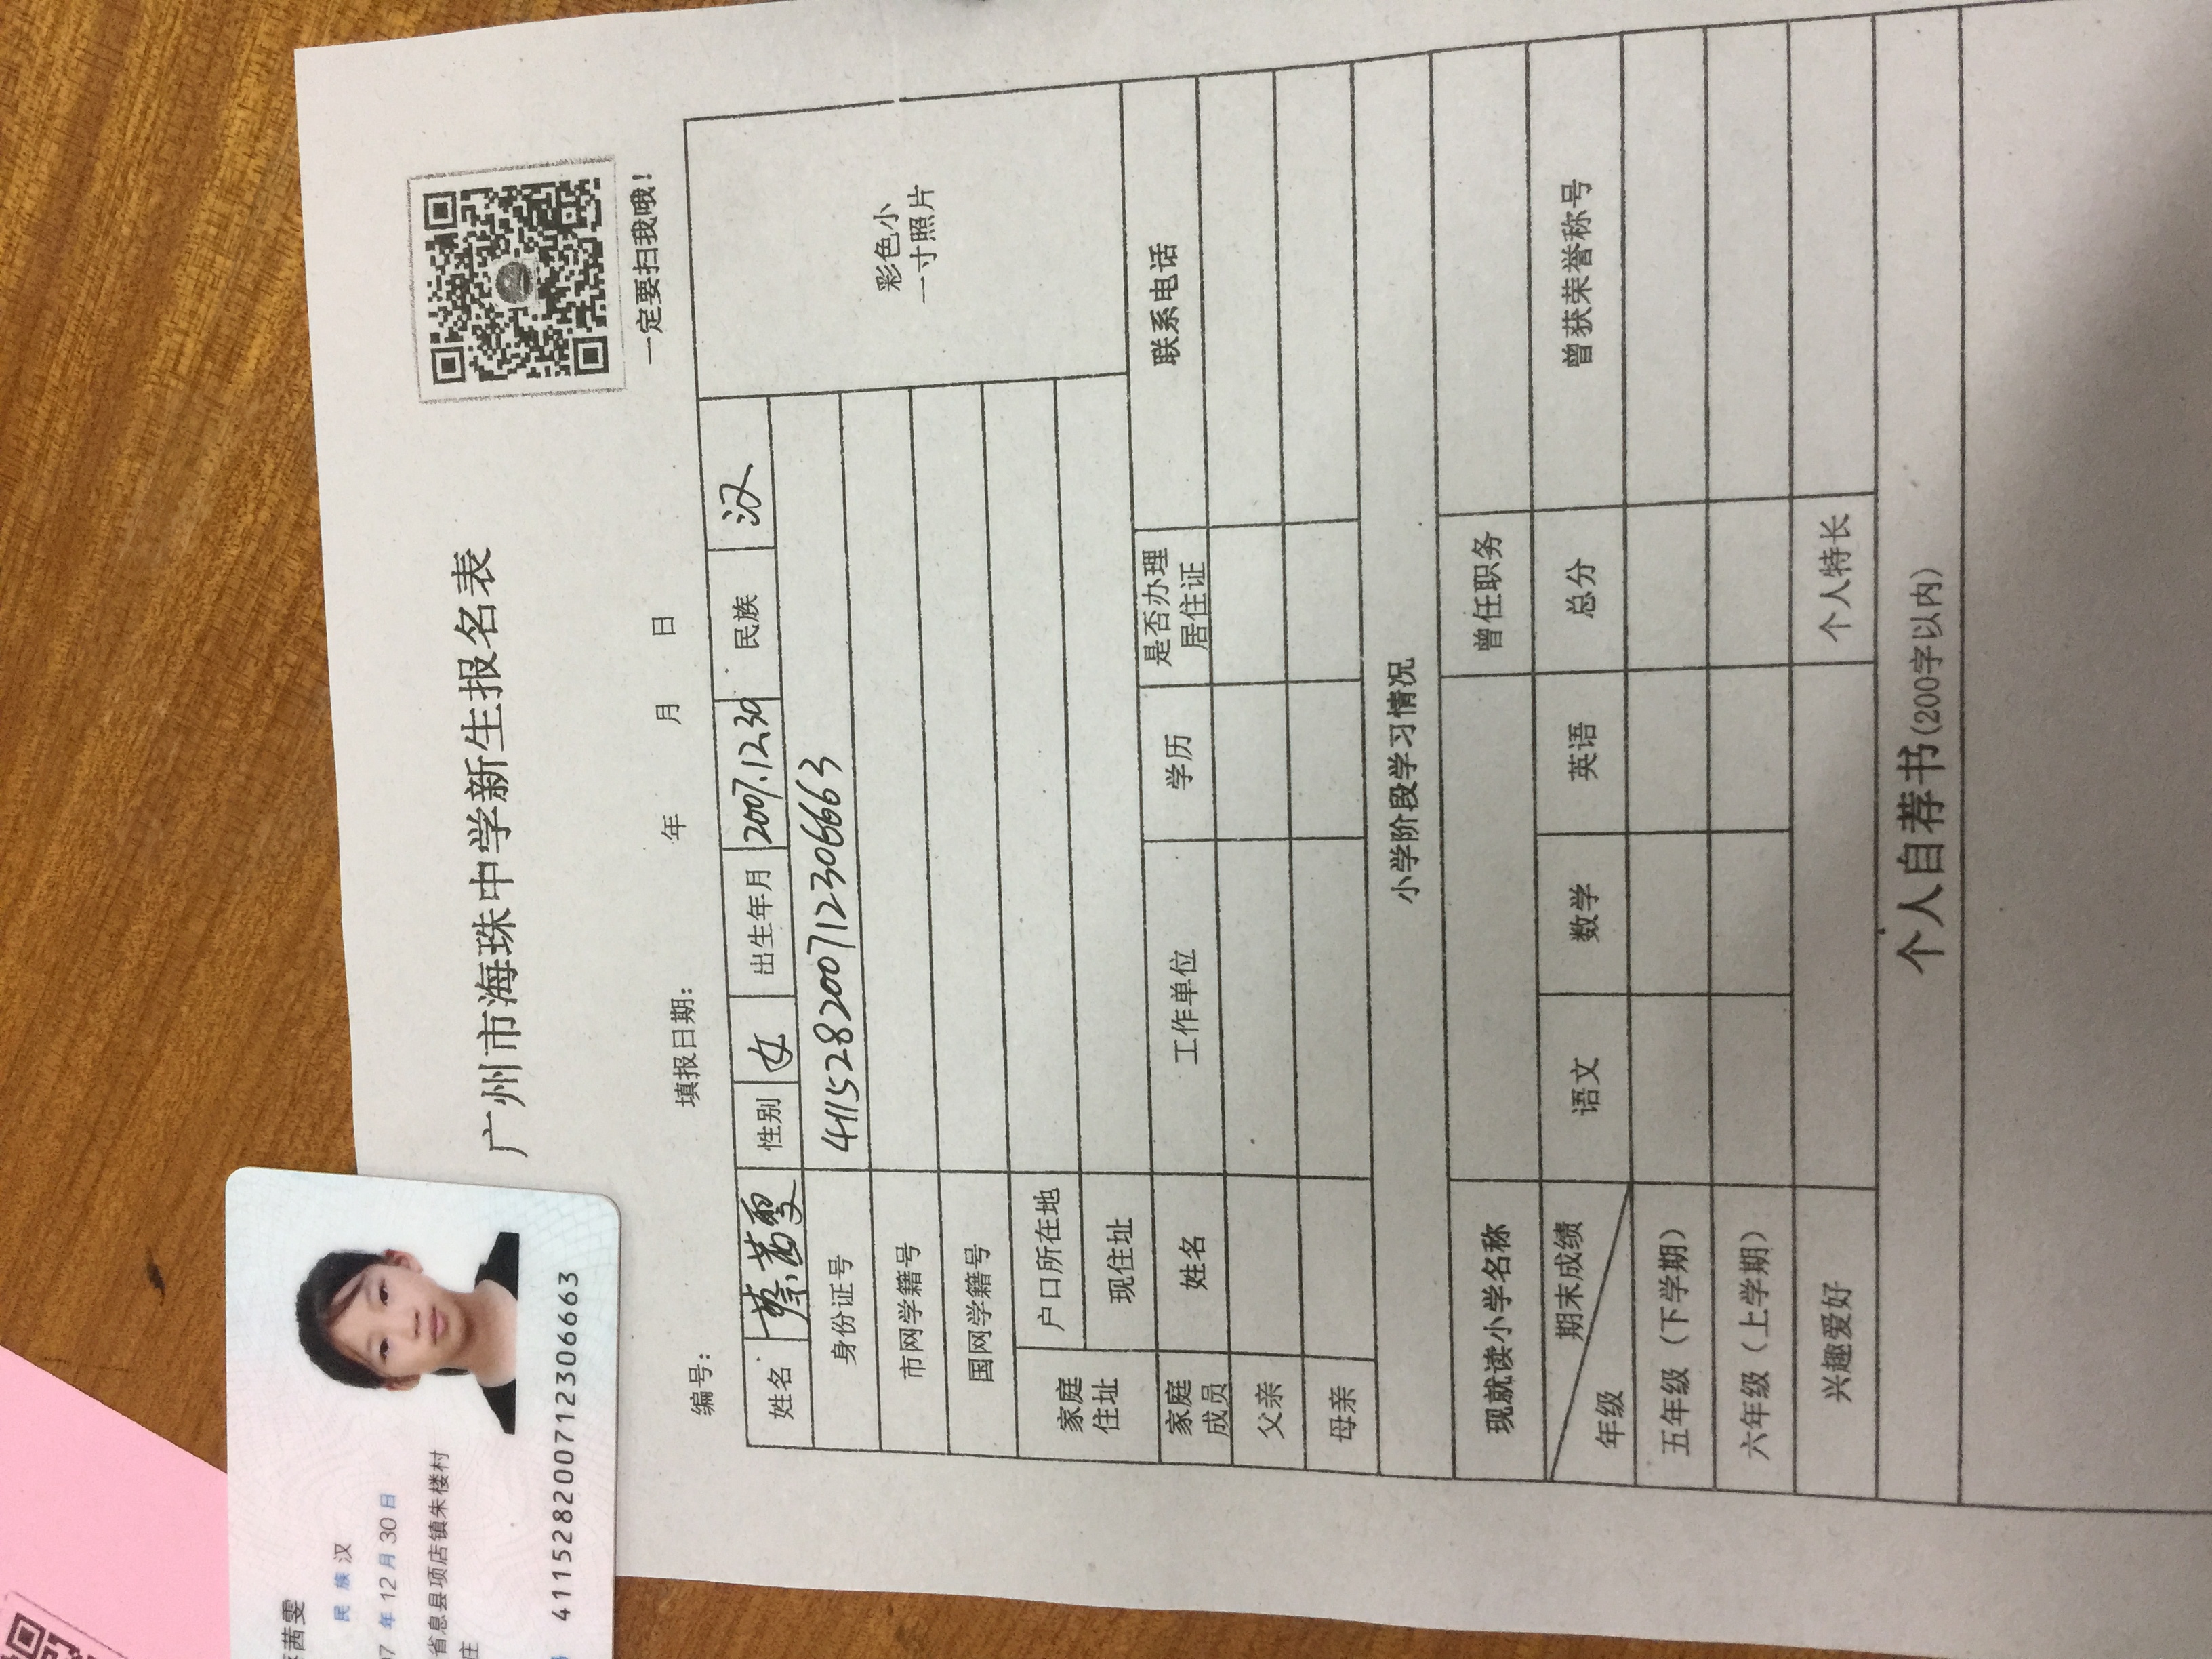 茜雯
民族 汉
07 年 12 月 30 日
省息县项店镇朱楼村
庄
411528200712306663
广州市海珠中学新生报名表
一定要扫我哦！
编号： 填报日期： 年 月 日
姓名 蔡茜雯 性别 女 出生年月 2007.12.30 民族 汉
身份证号 411528200712306663
彩色小
一寸照片
市网学籍号
国网学籍号
家庭住址 户口所在地
现住址
家庭成员 姓名 工作单位 学历 是否办理居住证 联系电话
父亲
母亲
小学阶段学习情况
现就读小学名称 曾任职务
期末成绩 年级 语文 数学 英语 总分 曾获荣誉称号
五年级（下学期）
六年级（上学期）
兴趣爱好 个人特长
个人自荐书(200字以内)